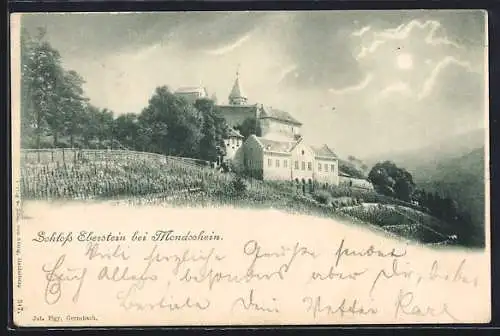 Schloß Eberstein bei Mondschein.
Viele herzliche Grüße sendet
Euch Allen, besonders aber dir, liebe
Dein Vetter Karl
Jos. Figy, Gernsbach.
347.